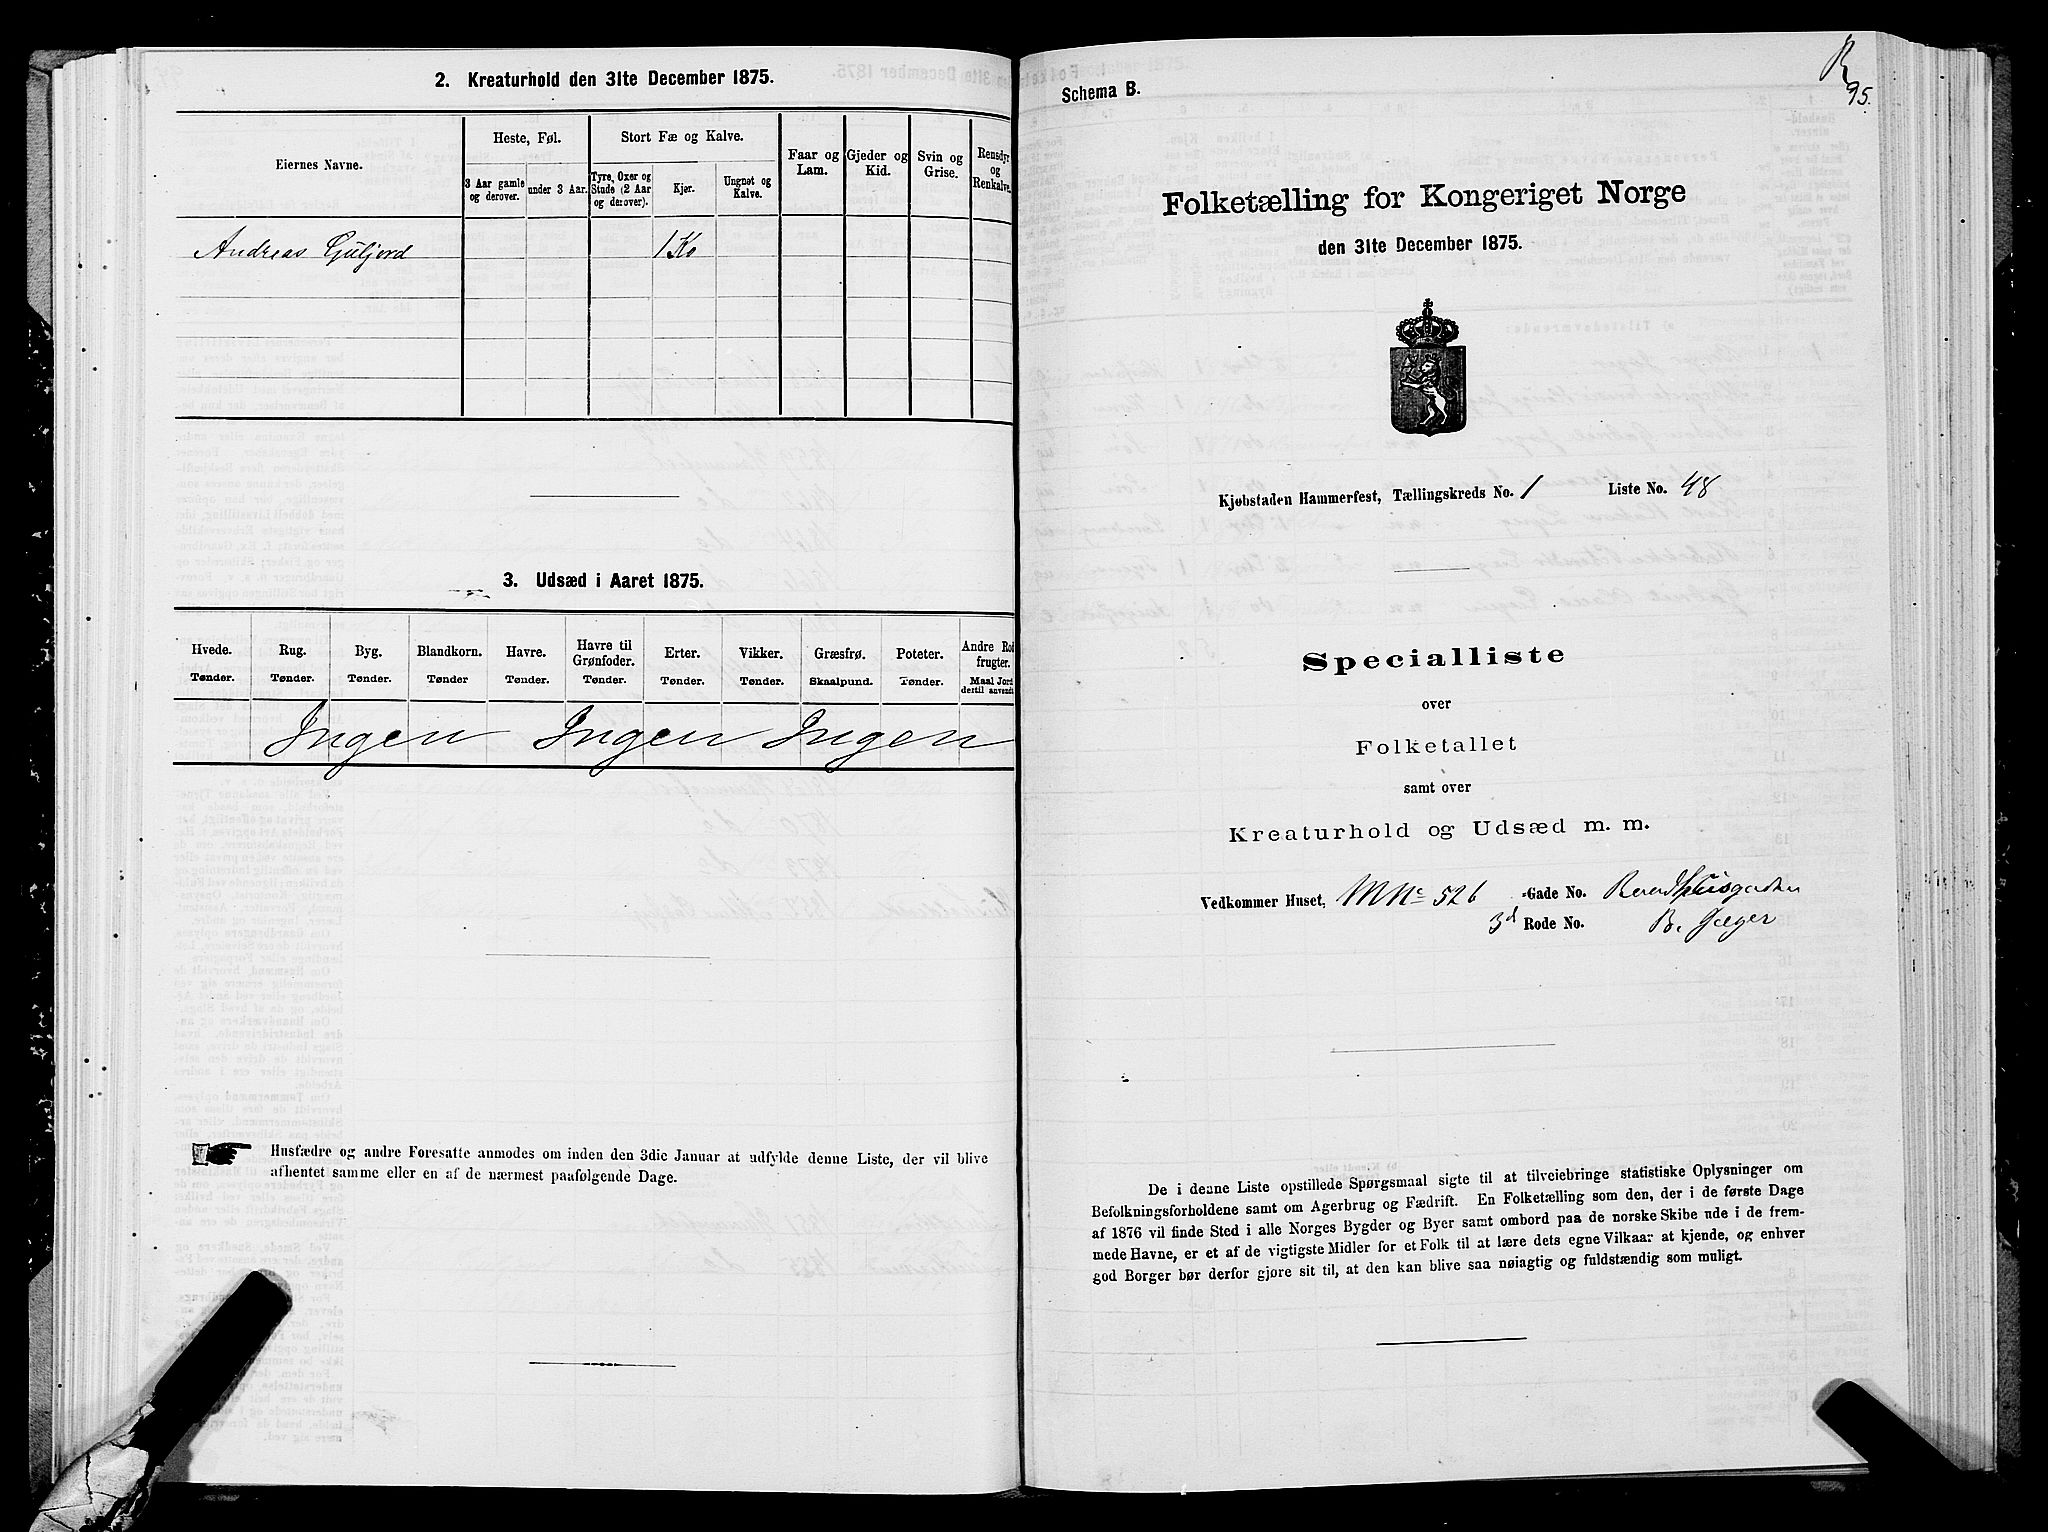 2. Kreaturhold den 31te December 1875.
Eiernes Navne.
Heste, Føl.
Stort Fæ og Kalve.
Faar og Lam.
Gjeder og Kid.
Svin og Grise.
Rensdyr og Renkalve.
3 Aar gamle og derover.
under 3 Aar.
Tyre, Oxer og Stude (2 Aar og derover).
Kjør.
Ungnøt og Kalve.
Andreas Guljord 1 Ko
3. Udsæd i Aaret 1875.
Hvede. Rug. Byg. Blandkorn. Havre. Havre til Grønfoder. Erter. Vikker. Græsfrø. Poteter. Andre Rodfrugter.
Tønder. Tønder. Tønder. Tønder Tønder. Tønder. Tønder. Tønder. Skaalpund. Tønder. Maal Jord dertil anvendt
Ingen Ingen Ingen
Husfædre og andre Foresatte anmodes om inden den 3die Januar at udfylde denne Liste, der vil blive
afhentet samme eller en af de nærmest paafølgende Dage.
Schema B.
95.
Folketælling for Kongeriget Norge
den 31te December 1875.
Kjøbstaden Hammerfest, Tællingskreds No. 1 Liste No. 48
Specialliste
over
Folketallet
samt over
Kreaturhold og Udsæd m. m.
Vedkommer Huset, MNo 526 -Gade No.
3d Rode No. B. Jæger
De i denne Liste opstillede Spørgsmaal sigte til at tilveiebringe statistiske Oplysninger om
Befolkningsforholdene samt om Agerbrug og Fædrift. En Folketælling som den, der i de første Dage
af 1876 vil finde Sted i alle Norges Bygder og Byer samt ombord paa de norske Skibe ude i de frem-
mede Havne, er et af de vigtigste Midler for et Folk til at lære dets egne Vilkaar at kjende, og enhver
god Borger bør derfor gjøre sit til, at den kan blive saa nøiagtig og fuldstændig som muligt.